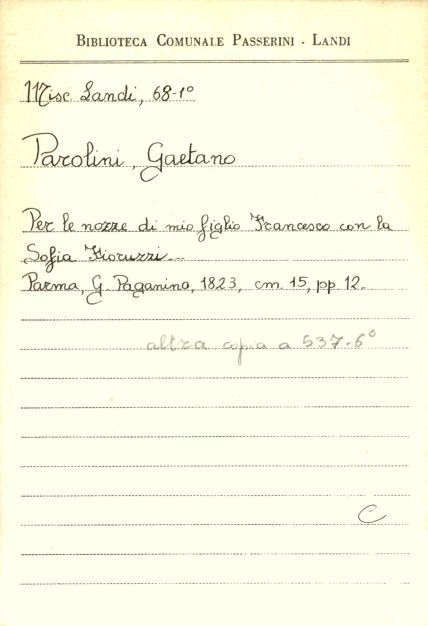 BIBLIOTECA COMUNALE PASSERINI - LANDI
Misc. Landi, 68-1º
Parolini, Gaetano
Per le nozze di mio figlio Francesco con la
Sofia Fioruzzi...
Parma, G. Paganino, 1823, cm. 15, pp. 12.
altra copia a 537-6º
C